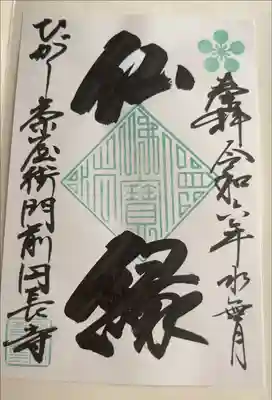 奉拝 令和六年水無月
仏縁
ひがし茶屋街門前円長寺